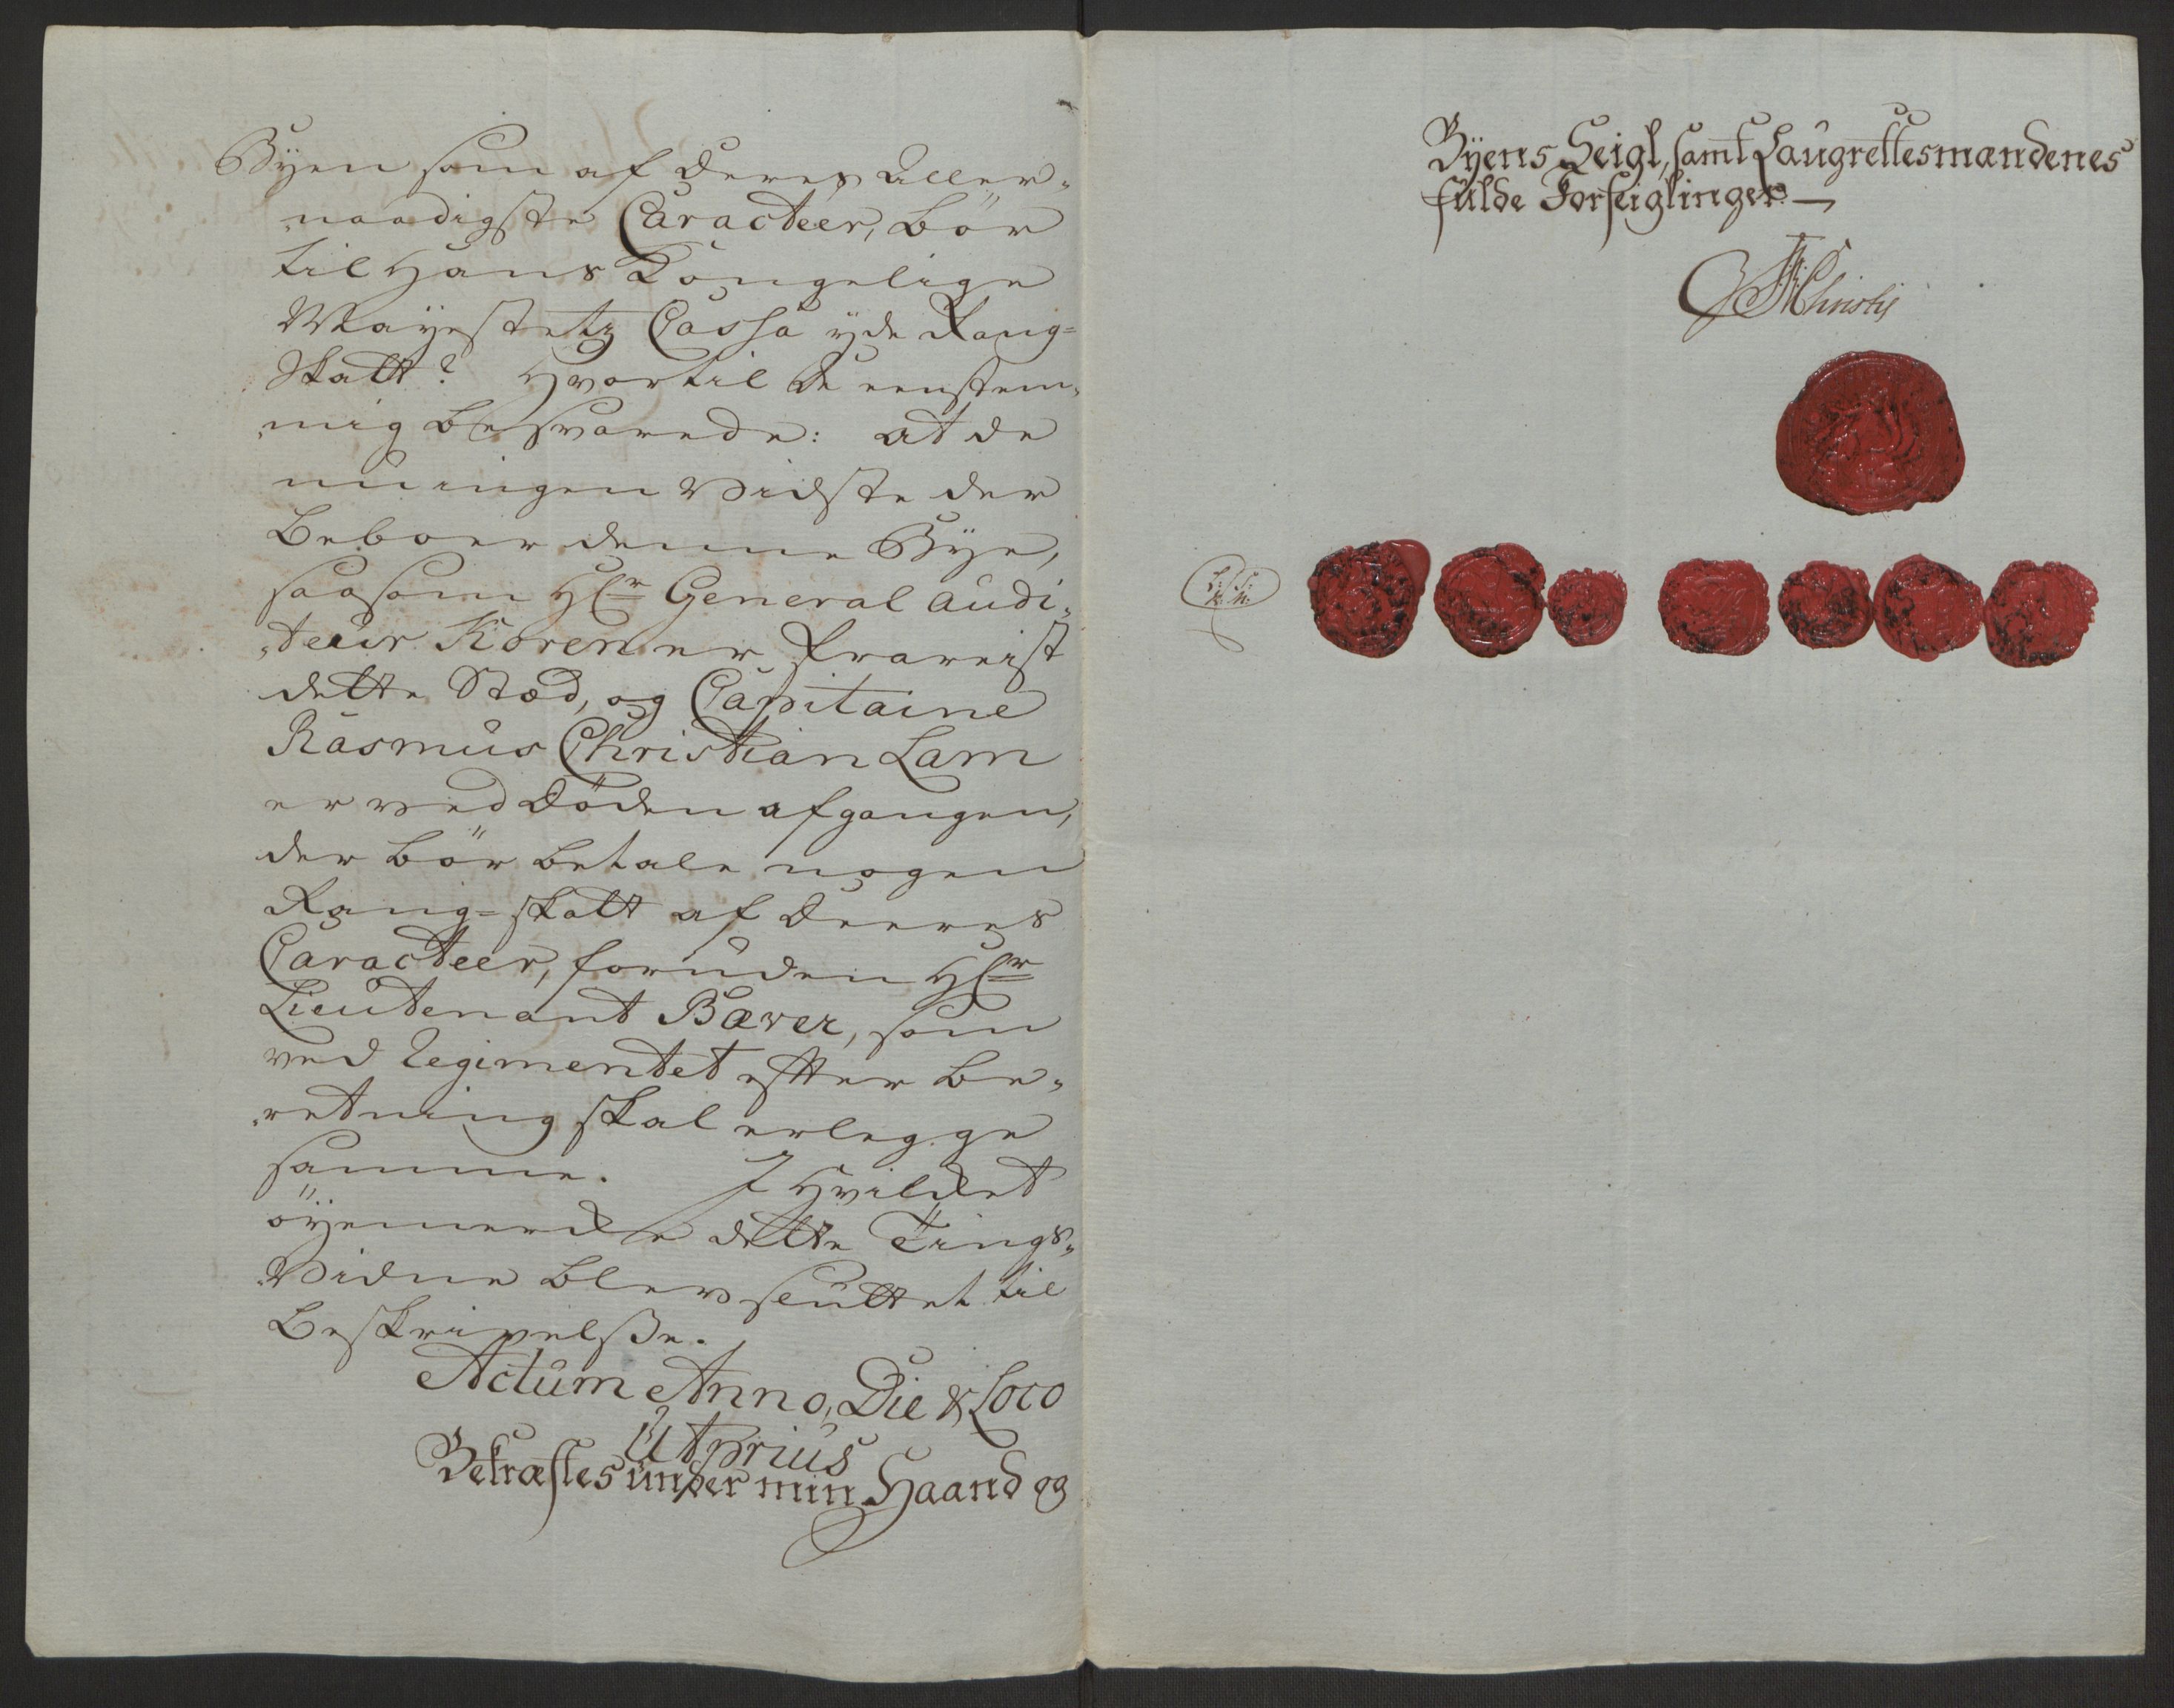 Byen som af deres aller-
naadigste Caracteer, bør
til Hans Kongelige
Mayestetz Cassa yde Rang-
Skatt? Hvortil de eenstem-
mig besvarede: at de
nu ingen vidste der
beboer denne Bye,
saasom Hr General Audi-
teur Koren er frareist
dette Stæd, og Capitaine
Rasmus Christian Lam
er ved døden afgangen,
der bør betale nogen
Rang-skatt af deeres
Caracteer, foruden Hr
Lieutenant Bæver, som
ved Regimentet efter be-
retning skal erlegge
samme. I hvilket
øyemerke dette Tings-
Vidne blev sluttet til
beskrivelsße.
Actum Anno, Die & Loco
Ut prius
Bekræftes under min Haand og
Byens Seigl, samt Laugrettesmændenes
fulde Forseiglinger. —
Christij